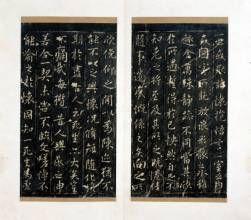 世或取諸懷抱悟言一室之內
或因寄所託放浪形骸之外雖
趣舍萬殊靜躁不同當其欣
於所遇蹔得於己快然自足不
知老之將至及其所之既惓情
隨事遷感慨係之矣向之所
欣俛仰之間以為陳迹猶不
能不以之興懷況脩短隨化終
期於盡古人云死生亦大矣豈
不痛哉每攬昔人興感之由
若合一契未嘗不臨文嗟悼不
能喻之於懷固知一死生為虛